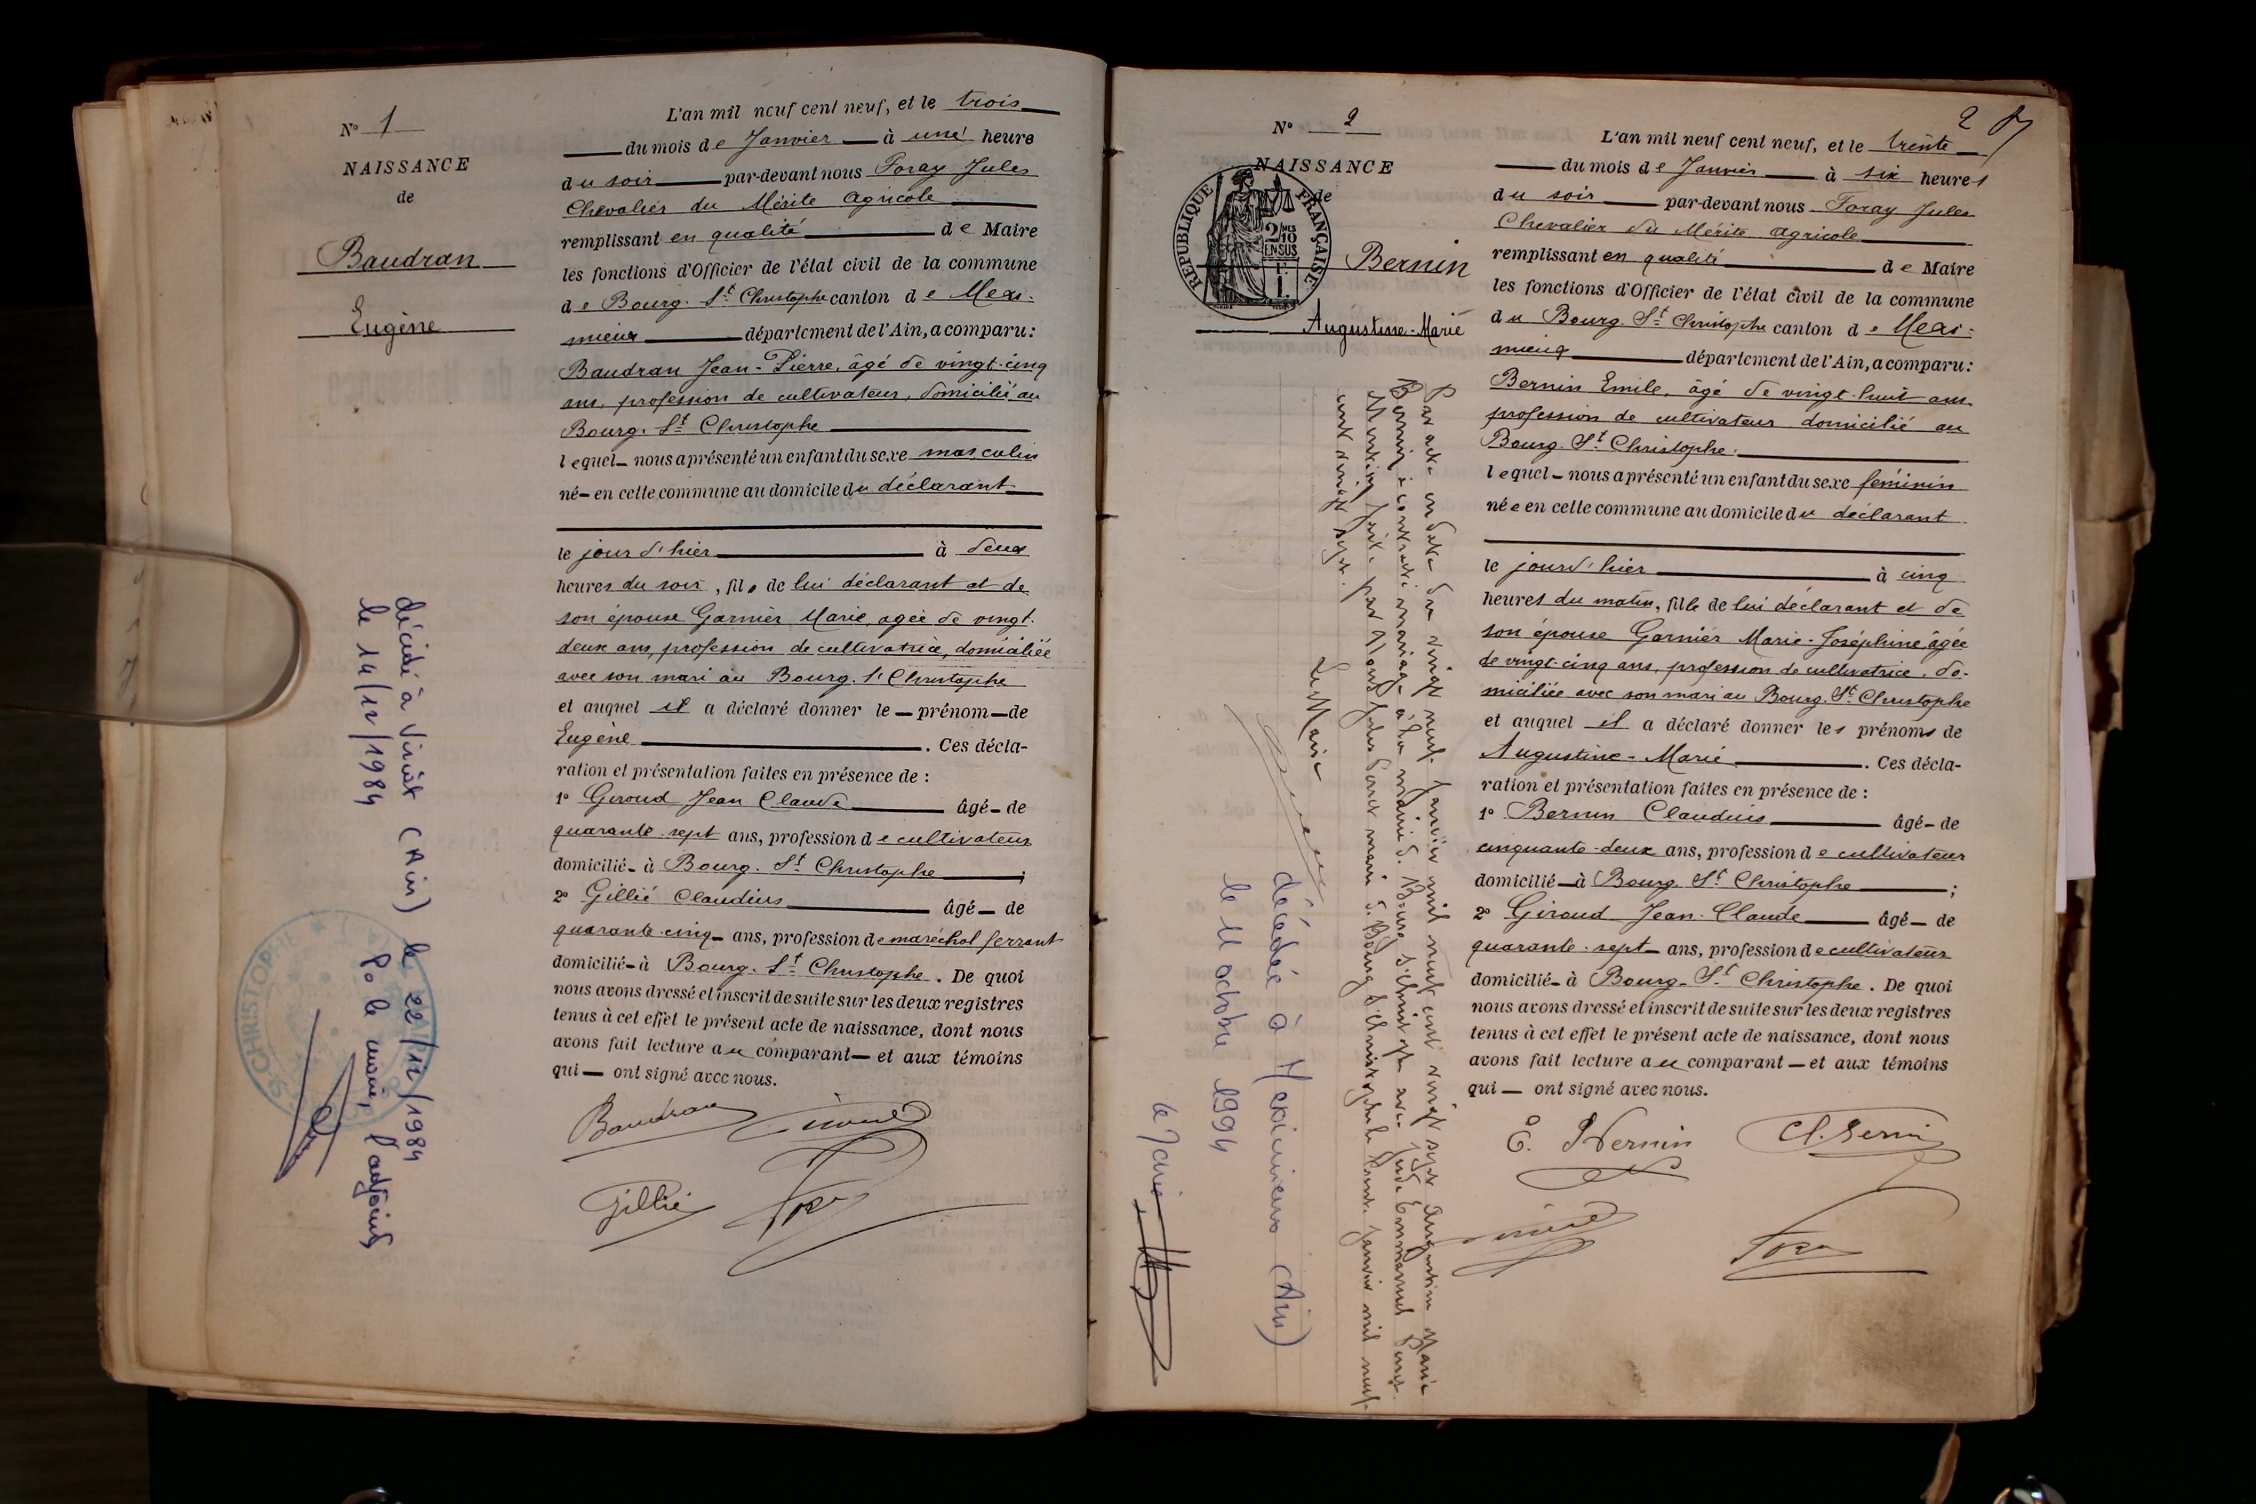 N° 1
NAISSANCE
de
Baudran
Eugène
décédé à Viriat (Ain) le 22/12/1984
le 14/12/1984 Po le maire, l'adjoint
S^t CHRISTOPHE
L'an mil neuf cent neuf, et le trois
du mois de Janvier à une heure
du soir par-devant nous Foray Jules
Chevalier du Mérite Agricole
remplissant en qualité de Maire
les fonctions d'Officier de l'état civil de la commune
de Bourg. S^t Christophe canton de Mexi-
mieux département de l'Ain, a comparu:
Baudran Jean-Pierre, âgé de vingt-cinq
ans, profession de cultivateur, domicilié au
Bourg. S^t Christophe
lequel nous a présenté un enfant du sexe masculin
né en cette commune au domicile du déclarant
le jour d'hier à deux
heures du soir, fils de lui déclarant et de
son épouse Garnier Marie, agée de vingt-
deux ans, profession de cultivatrice, domiciliée
avec son mari au Bourg. S^t Christophe
et auquel il a déclaré donner le prénom de
Eugène. Ces décla-
ration et présentation faites en présence de :
1° Giroud Jean Claude âgé de
quarante-sept ans, profession de cultivateur
domicilié à Bourg. S^t Christophe ;
2° Gillié Claudius âgé de
quarante-cinq ans, profession de maréchal ferrant
domicilié à Bourg. S^t Christophe. De quoi
nous avons dressé et inscrit de suite sur les deux registres
tenus à cet effet le présent acte de naissance, dont nous
avons fait lecture au comparant et aux témoins
qui ont signé avec nous.
Baudran Giroud
Gillié Foray
2
N° 2
NAISSANCE
de
REPUBLIQUE FRANÇAISE
2/10MES
EN SUS
Bernin
Augustine-Marie
Par acte en date du vingt neuf Janvier mil neuf cent vingt sept Augustine Marie
Bernin a contracté mariage à la mairie de Bourg S^t Christophe avec
Mention faite par Nous maire de Bourg S^t Christophe le Janvier mil neuf
cent vingt sept. Le Maire
décédée à Meximieux (Ain)
le 11 octobre 1994
le Maire
L'an mil neuf cent neuf, et le trente
du mois de Janvier à six heures
du soir par-devant nous Foray Jules
Chevalier du Mérite Agricole
remplissant en qualité de Maire
les fonctions d'Officier de l'état civil de la commune
du Bourg. S^t Christophe canton de Mexi-
mieux département de l'Ain, a comparu:
Bernin Emile, âgé de vingt-huit ans
profession de cultivateur domicilié au
Bourg. S^t Christophe.
lequel nous a présenté un enfant du sexe féminin
née en cette commune au domicile du déclarant
le jour d'hier à cinq
heures du matin, fille de lui déclarant et de
son épouse Garnier Marie-Joséphine âgée
de vingt-cinq ans, profession de cultivatrice, do-
miciliée avec son mari au Bourg. S^t Christophe
et auquel il a déclaré donner les prénoms de
Augustine-Marie. Ces décla-
ration et présentation faites en présence de :
1° Bernin Claudius âgé de
cinquante-deux ans, profession de cultivateur
domicilié à Bourg S^t Christophe ;
2° Giroud Jean-Claude âgé de
quarante-sept ans, profession de cultivateur
domicilié à Bourg-S^t Christophe. De quoi
nous avons dressé et inscrit de suite sur les deux registres
tenus à cet effet le présent acte de naissance, dont nous
avons fait lecture au comparant et aux témoins
qui ont signé avec nous.
E. Bernin Cl. Bernin
Giroud Foray